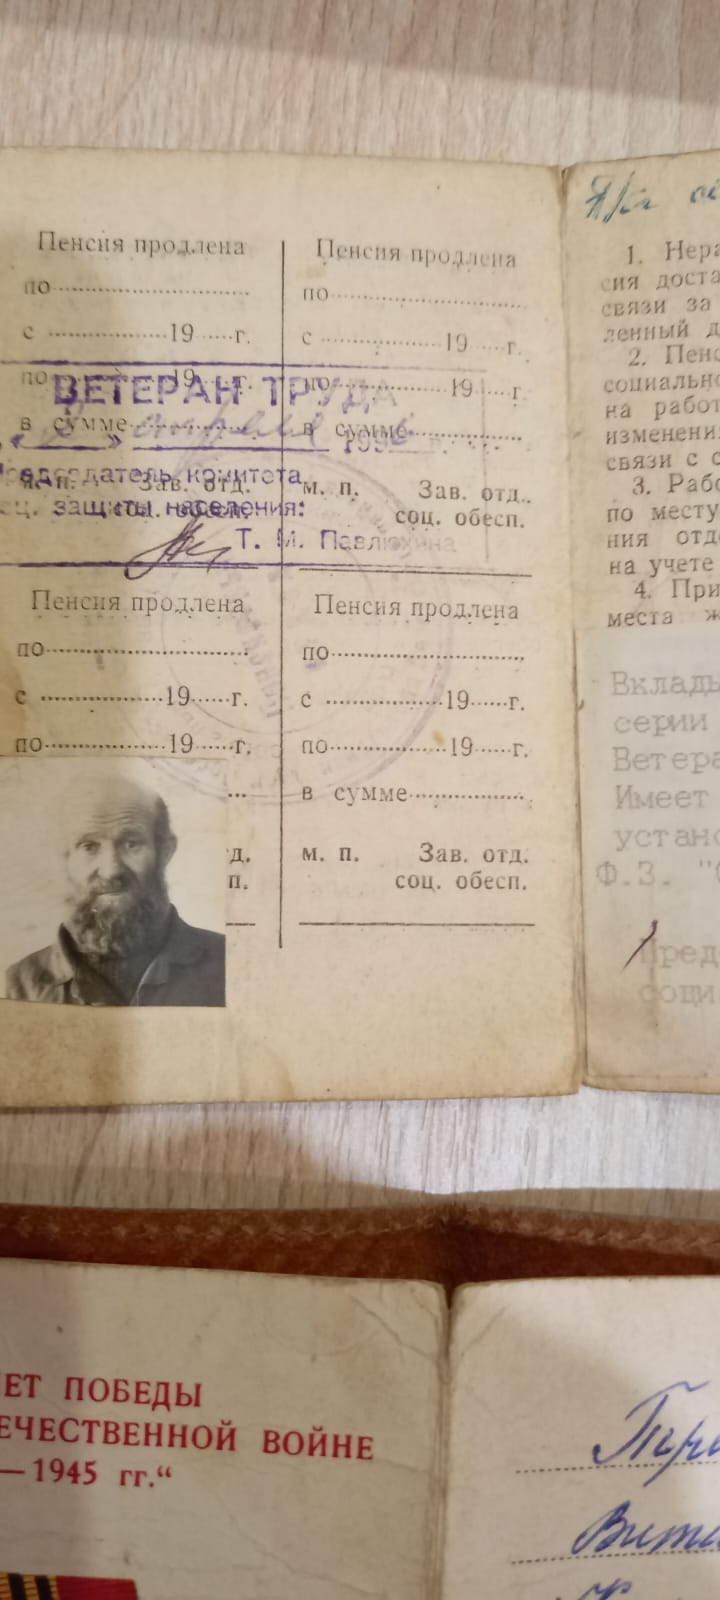 Пенсия продлена
по
с 19 г.
по 19 г.
в сумме
м. п. Зав. отд.
соц. обесп.
Пенсия продлена
по
с 19 г.
по 19 г.
в сумме
м. п. Зав. отд.
соц. обесп.
ВЕТЕРАН ТРУДА
" " апреля 199
Председатель комитета
соц. защиты населения:
Т. М. Павлюхина
Пенсия продлена
по
с 19 г.
по 19 г.
д.
п.
Пенсия продлена
по
с 19 г.
по 19 г.
в сумме
м. п. Зав. отд.
соц. обесп.
1. Нера
сия доста
связи за
ленный д
2. Пенс
социально
на работ
изменени
связи с с
3. Рабо
по месту
ния отд
на учете
4. При
места ж
Вклады
серии
Ветера
Имеет
устано
Ф.З. "
пред
соци
ЛЕТ ПОБЕДЫ
ЕЧЕСТВЕННОЙ ВОЙНЕ
—1945 гг."
Вита